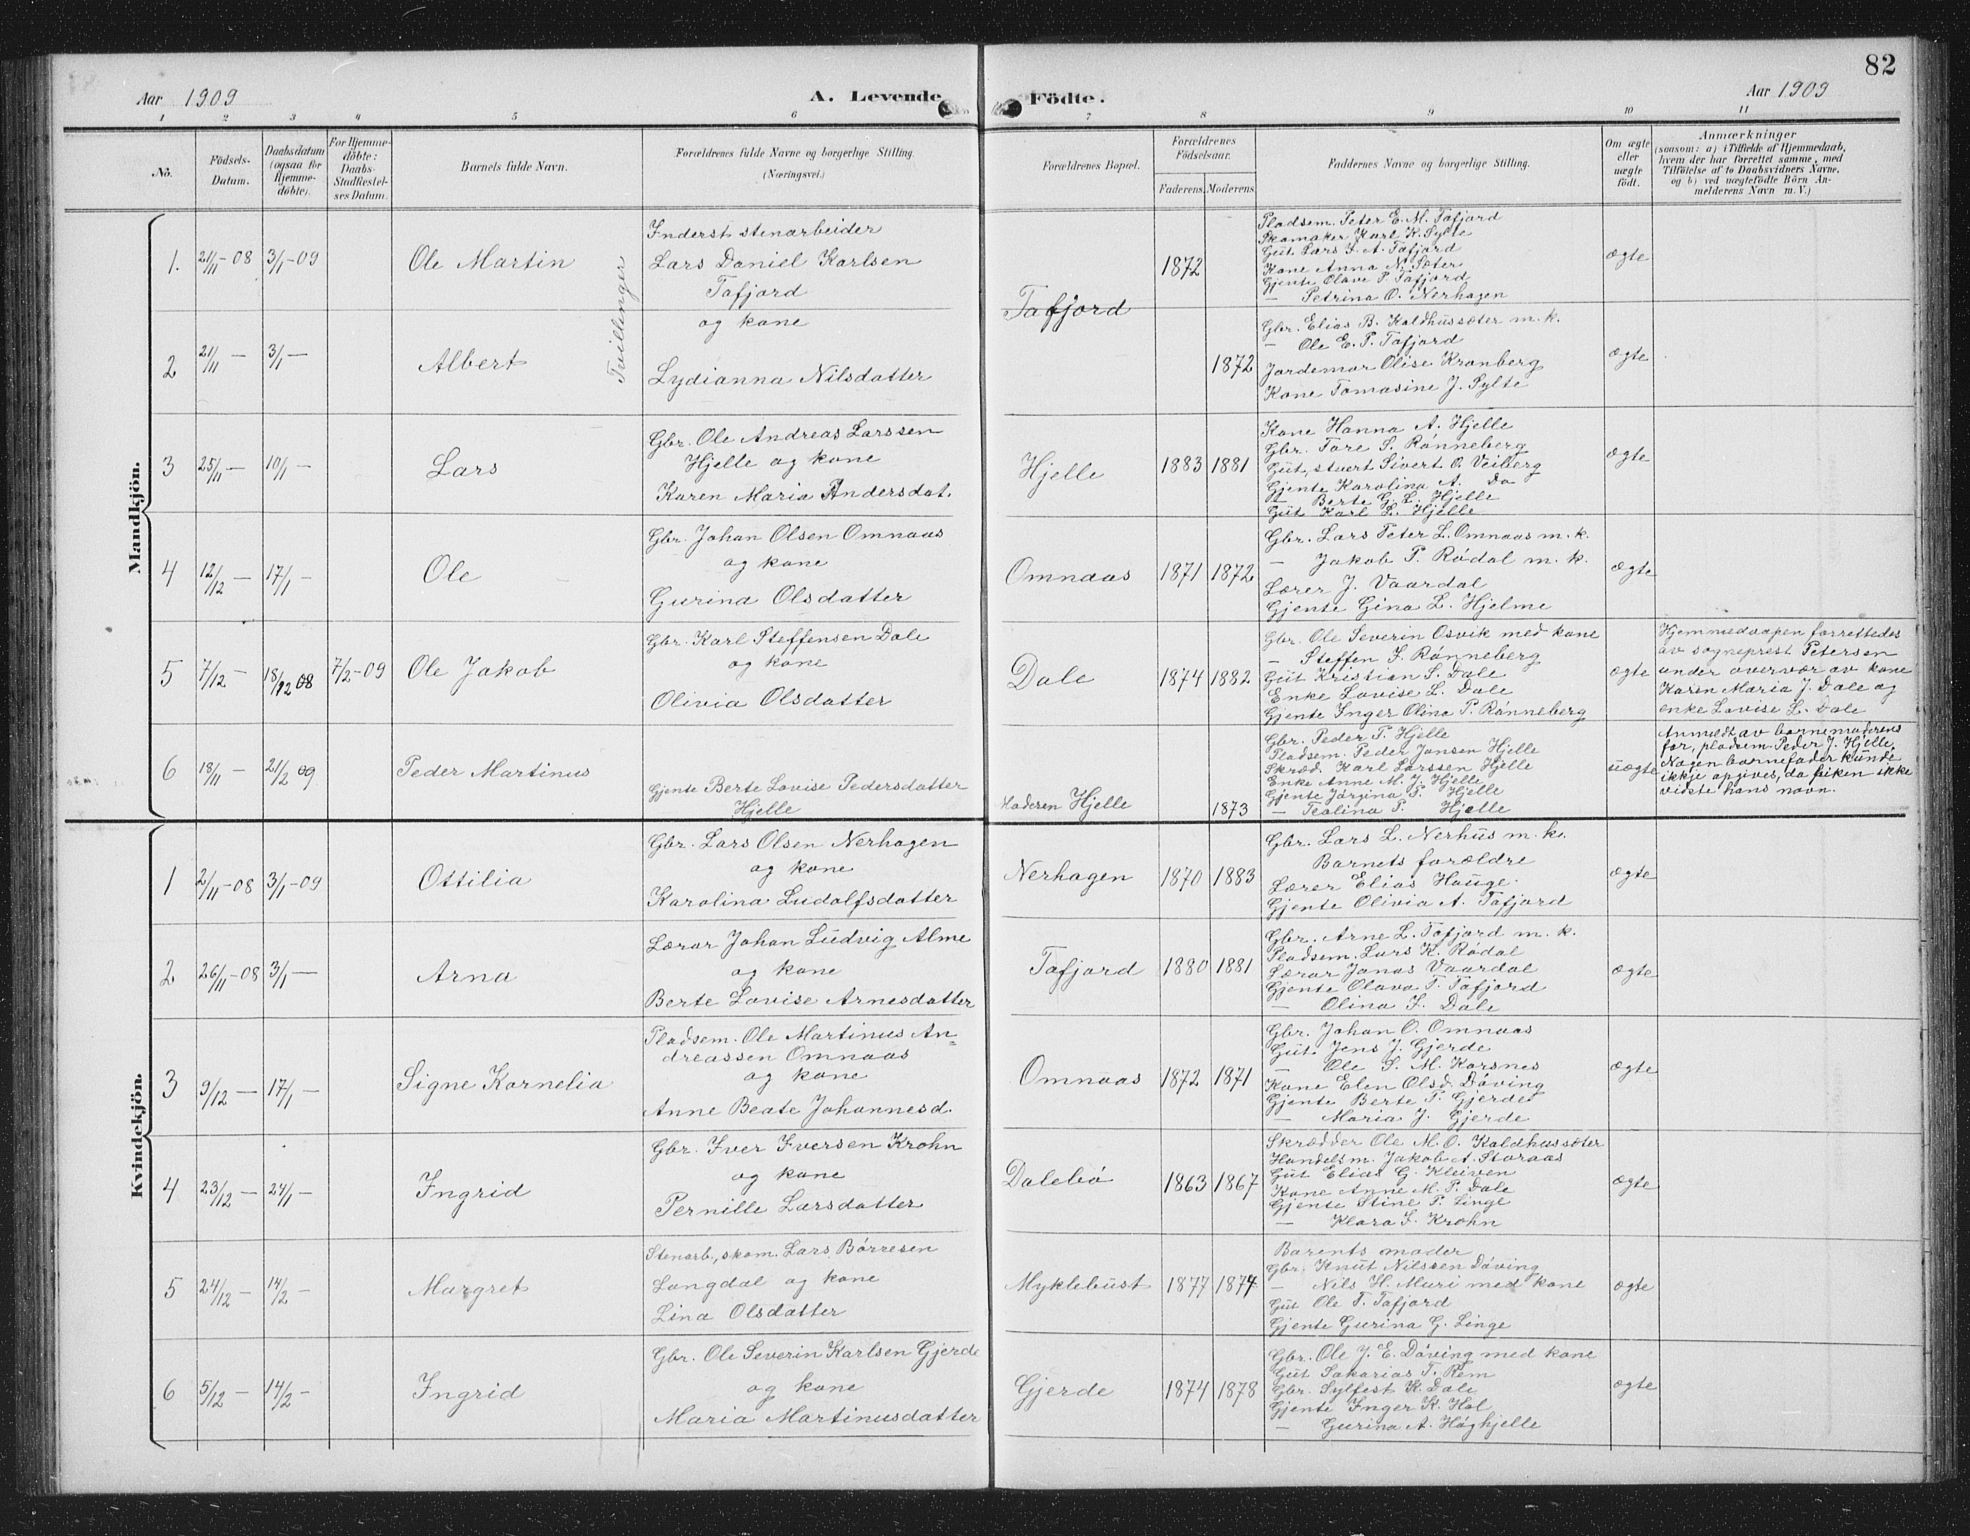 82
Aar 1909
A. Levende
Födte.
Aar 1909
1 2 3 4 5 6 7 8 9 10 11
No.
Födsels-
Datum.
Daabsdatum
(ogsaa for
Hjemme-
döbte).
For Hjemme-
döbte:
Daabs-
Stadfæstel-
ses Datum.
Barnets fulde Navn.
Forældrenes fulde Navne og borgerlige Stilling.
(Næringsvei.)
Forældrenes Bopæl.
Forældrenes
Födselsaar.
Faderens. Moderens.
Faddernes Navne og borgerlige Stilling.
Om ægte
eller
uægte
födt.
Anmærkninger
(saasom: a) i Tilfælde af Hjemmedaab,
hvem der har forrettet samme, med
Tilföielse af to Daabsvidners Navne,
og b) ved uægtefödte Börn An-
melderens Navn m. V.)
Mandkjön.
1. 21/11-08 3/1-09
Ole Martin
Tvillinger
Inderst stenarbeider
Lars Daniel Karlsen
Tafjord
og kone
Tafjord
1872
Pladsem. Peter E. M. Tafjord
Skomaker Karl K. Sylte
Gut Lars I. A. Tafjord
Kone Anna N. Sæter
Gjente Olave P. Tafjord
— Petrina O. Nerhagen
ægte
2 21/11 — 3/1 —
Albert
Lydianna Nilsdatter
1872
Gbr. Elias B. Kaldhussæter m. k.
— Ole E. P. Tafjord
Jordemor Olise Kronberg
Kone Tomasine J. Sylte
ægte
3 25/11 — 10/1 —
Lars
Gbr. Ole Andreas Larssen
Hjelle og kone
Karen Maria Andersdat.
Hjelle
1883 1881
Kone Hanna A. Hjelle
Gbr. Tore S. Rønneberg
Gut, stuert Sivert O. Veiberg
Gjente Karolina A. Do
— Berte G. L. Hjelle
Gut Karl L. Hjelle
ægte
4 12/12 — 17/1 —
Ole
Gbr. Johan Olsen Omnaas
og kone
Gurina Olsdatter
Omnaas
1871 1872
Gbr. Lars Peter L. Omnaas m. k.
— Jakob P. Rødal m. k.
Lærer J. Vaardal
Gjente Gina L. Hjelme
ægte
5 7/12 — 18/12 08 7/2-09
Ole Jakob
Gbr. Karl Steffensen Dale
og kone
Olivia Olsdatter
Dale
1874 1882
Gbr. Ole Severin Osvik med kone
— Steffen I. Rønneberg
Gut Kristian S. Dale
Enke Lovise L. Dale
Gjente Inger Olina P. Rønneberg
ægte
Hjemmedaapen forrettedes
av sogneprest Petersen
under overvær av kone
Karen Maria J. Dale og
enke Lovise L. Dale
6 18/11 — 21/2 09
Peder Martinus
Gjente Berte Lovise Pedersdatter
Hjelle
Moderen Hjelle
1873
Gbr. Peder T. Hjelle
Pladsem. Peder Jonsen Hjelle
Skræd. Karl Larssen Hjelle
Enke Anne M. J. Hjelle
Gjente Jørgina P. Hjelle
— Teolina P. Hjelle
uægte
Anmeldt av barnemoderens
far, pladsm. Peder J. Hjelle.
Nogen barnefader kunde
ikkje opgives, da piken ikke
vidste hans navn.
Kvindekjön.
1 2/11-08 3/1-09
Ottilia
Gbr. Lars Olsen Nerhagen
og kone
Karolina Ludolfsdatter
Nerhagen
1870 1883
Gbr. Lars L. Nerhus m. k.
Barnets forældre
Lærer Elias Hauge.
Gjente Olivia A. Tafjord
ægte
2 26/11-08 3/1 —
Arna
Lærar Johan Ludvig Alme
og kone
Berte Lovise Arnesdatter
Tafjord
1880 1881
Gbr. Arne L. Tafjord m. k.
Pladsem. Lars K. Rødal
Lærar Jonas Vaardal
Gjente Olava T. Tafjord
— Olina I. Dale
ægte
3 9/12 — 17/1 —
Signe Kornelia
Pladsem. Ole Martinus An=
dreassen Omnaas
og kone
Anne Beate Johannesd.
Omnaas
1872 1871
Gbr. Johan O. Omnaas
Gut Jens J. Gjerde
— Ole S. M. Korsnes
Kone Elen Olsd. Døving
Gjente Berte T. Gjerde
— Maria J. Gjerde
ægte
4 23/12 — 24/1 —
Ingrid
Gbr. Iver Iversen Krohn
og kone
Pernille Larsdatter
Dalebø
1863 1867
Skrædder Ole M. O. Kaldhussæter
Handelsm. Jakob A. Storaas
Gut Elias G. Kleiven
Kone Anne M. P. Dale
Gjente Stine P. Linge
— Klara I. Krohn
ægte
5 24/12 — 14/2 —
Margret
Stenarb., skom. Lars Børresen
Langdal og kone
Lina Olsdatter
Myklebust
1877 1874
Barents moder
Gbr. Knut Nilssen Døving
— Nils H. Muri med kone
Gut Ole T. Tafjord
Gjente Gurina G. Linge
ægte
6 5/12 — 14/2 —
Ingrid
Gbr. Ole Severin Karlsen Gjerde
og kone
Maria Martinusdatter
Gjerde
1874 1878
Gbr. Ole J. E. Døving med kone
Gut Sakarias T. Rem
Gbr. Sylfest K. Dale
Gjente Inger K. Hol
— Gurina A. Høghjelle
ægte